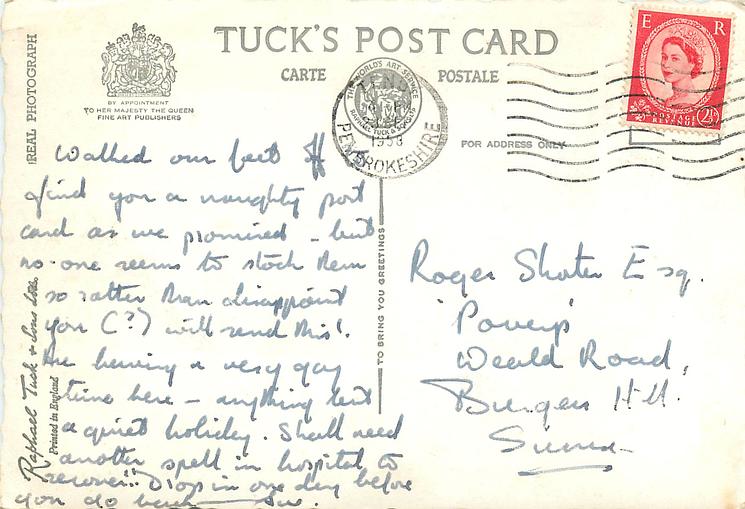 TUCK'S POST CARD
CARTE POSTALE
BY APPOINTMENT
TO HER MAJESTY THE QUEEN
FINE ART PUBLISHERS
REAL PHOTOGRAPH
E R
POSTAGE
REVENUE
2½
THE WORLD'S ART SERVICE
RAPHAEL TUCK & SONS LTD
PEMBROKESHIRE
FOR ADDRESS ONLY
TO BRING YOU GREETINGS
Raphael Tuck & Sons Ltd.
Printed in England
Walked our feet off
find you a naughty post
card as we promised - but
no-one seems to stock them
so rather than disappoint
you (?) will send this!
Are having a very gay
time here - anything but
a quiet holiday. Shall need
another spell in hospital to
recover!! Drop in one day before
you go back Sue.
Roger Shoter Esq.
Weald Road,
Burgess Hill.
Sussex